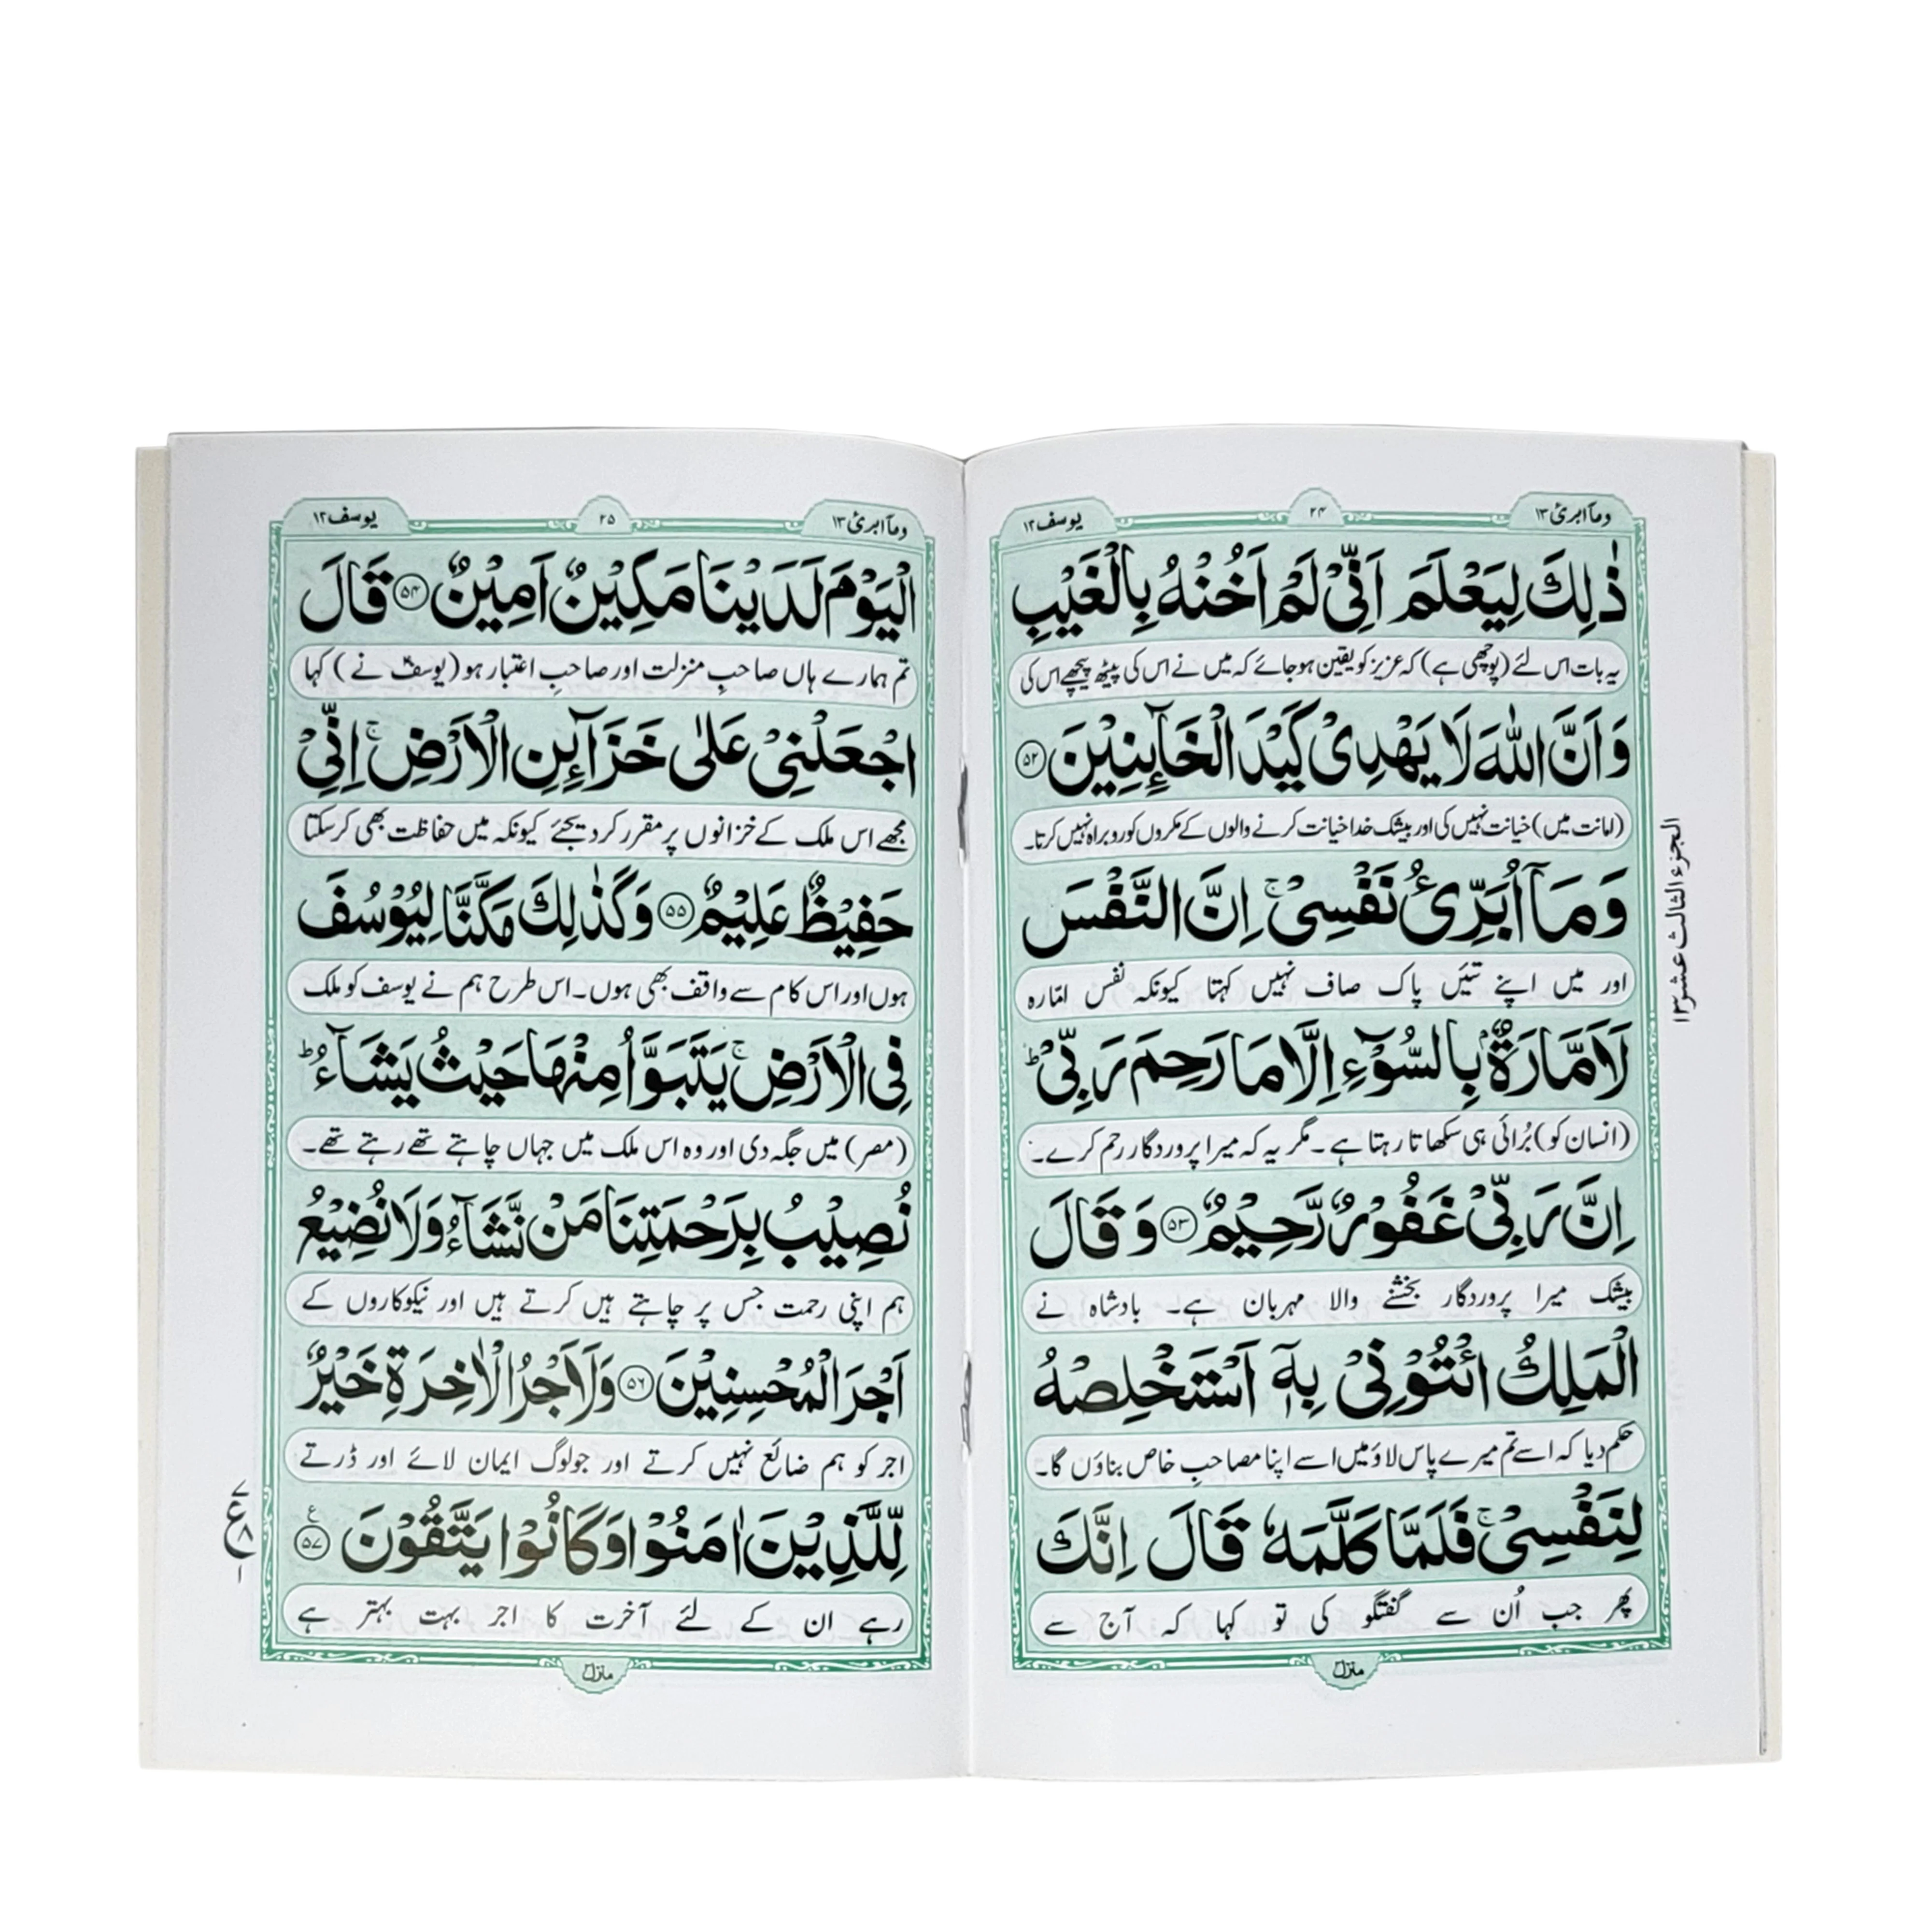 وماۤابرئ ۱۳
۲۴
یوسف ۱۲
ذٰلِكَ لِيَعْلَمَ اَنِّيْ لَمْ اَخُنْهُ بِالْغَيْبِ
یہ بات اس لئے (پوچھی ہے) کہ عزیز کو یقین ہو جائے کہ میں نے اس کی پیٹھ پیچھے اس کی
وَاَنَّ اللّٰهَ لَا يَهْدِيْ كَيْدَ الْخَآئِنِيْنَ ۵۲
(امانت میں) خیانت نہیں کی اور بیشک خدا خیانت کرنے والوں کے مکروں کو روبراہ نہیں کرتا۔
وَمَاۤ اُبَرِّئُ نَفْسِيْ ۚ اِنَّ النَّفْسَ
اور میں اپنے تئیں پاک صاف نہیں کہتا کیونکہ نفس امّارہ
لَاَمَّارَةٌۢ بِالسُّوْٓءِ اِلَّا مَا رَحِمَ رَبِّيْ ؕ
(انسان کو) بُرائی ہی سکھاتا رہتا ہے۔ مگر یہ کہ میرا پروردگار رحم کرے۔
اِنَّ رَبِّيْ غَفُوْرٌ رَّحِيْمٌ ۵۳ وَقَالَ
بیشک میرا پروردگار بخشنے والا مہربان ہے۔ بادشاہ نے
الْمَلِكُ ائْتُوْنِيْ بِهٖۤ اَسْتَخْلِصْهُ
حکم دیا کہ اسے تم میرے پاس لاؤ میں اسے اپنا مصاحبِ خاص بناؤں گا۔
لِنَفْسِيْ ۚ فَلَمَّا كَلَّمَهٗ قَالَ اِنَّكَ
پھر جب اُن سے گفتگو کی تو کہا کہ آج سے
منزل۳
الجزء الثالث عشر ۱۳
وماۤابرئ ۱۳
۲۵
یوسف ۱۲
الْيَوْمَ لَدَيْنَا مَكِيْنٌ اَمِيْنٌ ۵۴ قَالَ
تم ہمارے ہاں صاحبِ منزلت اور صاحبِ اعتبار ہو (یوسفؑ نے) کہا
اجْعَلْنِيْ عَلٰى خَزَآئِنِ الْاَرْضِ ۚ اِنِّيْ
مجھے اس ملک کے خزانوں پر مقرر کر دیجئے کیونکہ میں حفاظت بھی کر سکتا
حَفِيْظٌ عَلِيْمٌ ۵۵ وَكَذٰلِكَ مَكَّنَّا لِيُوْسُفَ
ہوں اور اس کام سے واقف بھی ہوں۔ اس طرح ہم نے یوسف کو ملک
فِي الْاَرْضِ ۚ يَتَبَوَّاُ مِنْهَا حَيْثُ يَشَآءُ ؕ
(مصر) میں جگہ دی اور وہ اس ملک میں جہاں چاہتے تھے رہتے تھے۔
نُصِيْبُ بِرَحْمَتِنَا مَنْ نَّشَآءُ وَلَا نُضِيْعُ
ہم اپنی رحمت جس پر چاہتے ہیں کرتے ہیں اور نیکوکاروں کے
اَجْرَ الْمُحْسِنِيْنَ ۵۶ وَلَاَجْرُ الْاٰخِرَةِ خَيْرٌ
اجر کو ہم ضائع نہیں کرتے اور جو لوگ ایمان لائے اور ڈرتے
لِّلَّذِيْنَ اٰمَنُوْا وَكَانُوْا يَتَّقُوْنَ ۵۷ ع
رہے ان کے لئے آخرت کا اجر بہت بہتر ہے
منزل۳
۷
ع
۸
۱